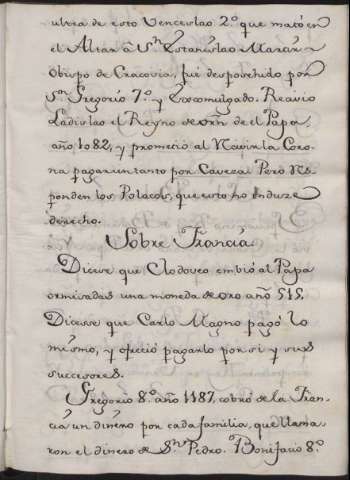 ultra de esto Venceslao 2.º que mató en
el Altar â Sn. Estanislao Martir
Obispo de Cracovia, fue desposehido por
Sn. Gregorio 7.º y Excomulgado. Reavio
Ladislao el Reyno de orñ de el Papa
año 1082, y prometió al Recivir la Coro-
na pagar un tanto por Caveza. Pero Res-
ponden los Polacos, que esto no Induze
derecho.
Sobre Francia
Dicese que Clodoveo embió al Papa
ormisdas una moneda de oro año 515.
Dicesse que Carlo Magno pagó lo
mismo, y ofreció pagarlo por si y sus
successores.
Gregorio 8.º año 1187, cobró de la Fran-
cia un dinero por cada familia, que llama-
ron el dinero de Sn. Pedro. Bonifacio 8.º